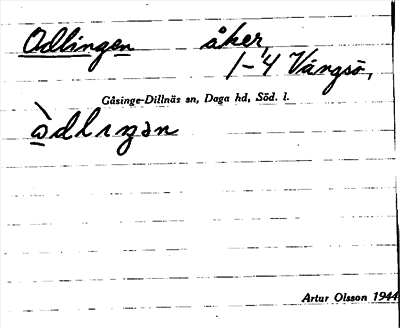 Odlingen åker,
1-4 Vängsö,
Gåsinge-Dillnäs sn, Daga hd, Söd. l.
Artur Olsson 1944